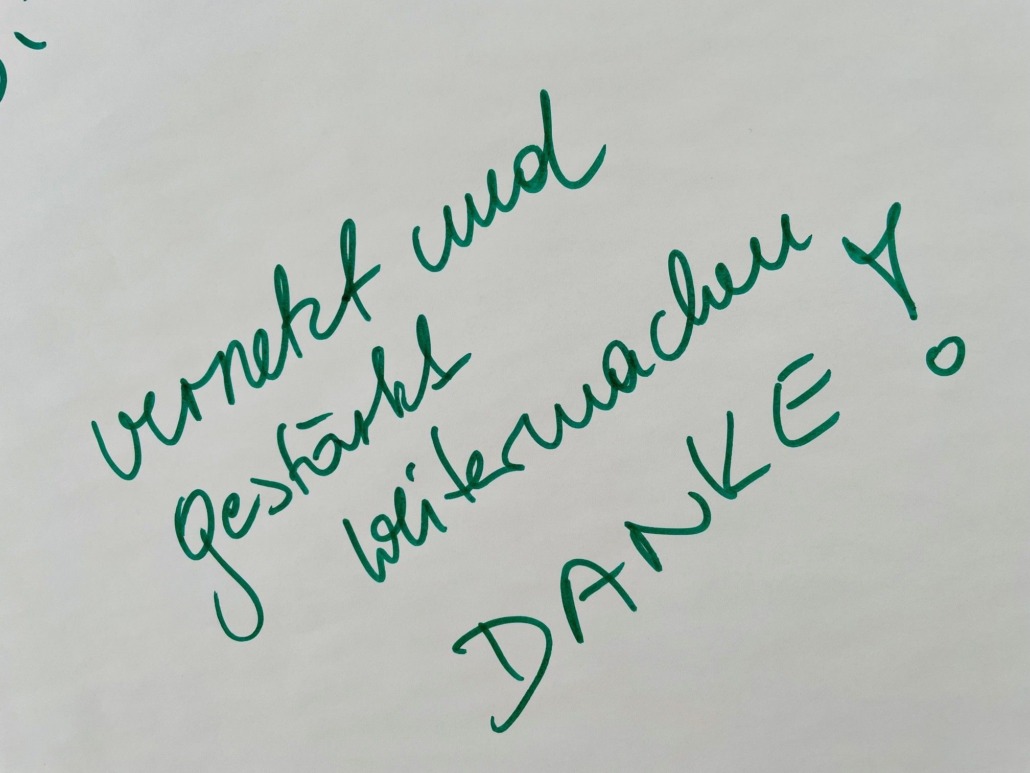 vernetzt und
gestärkt
weitermachen!
DANKE